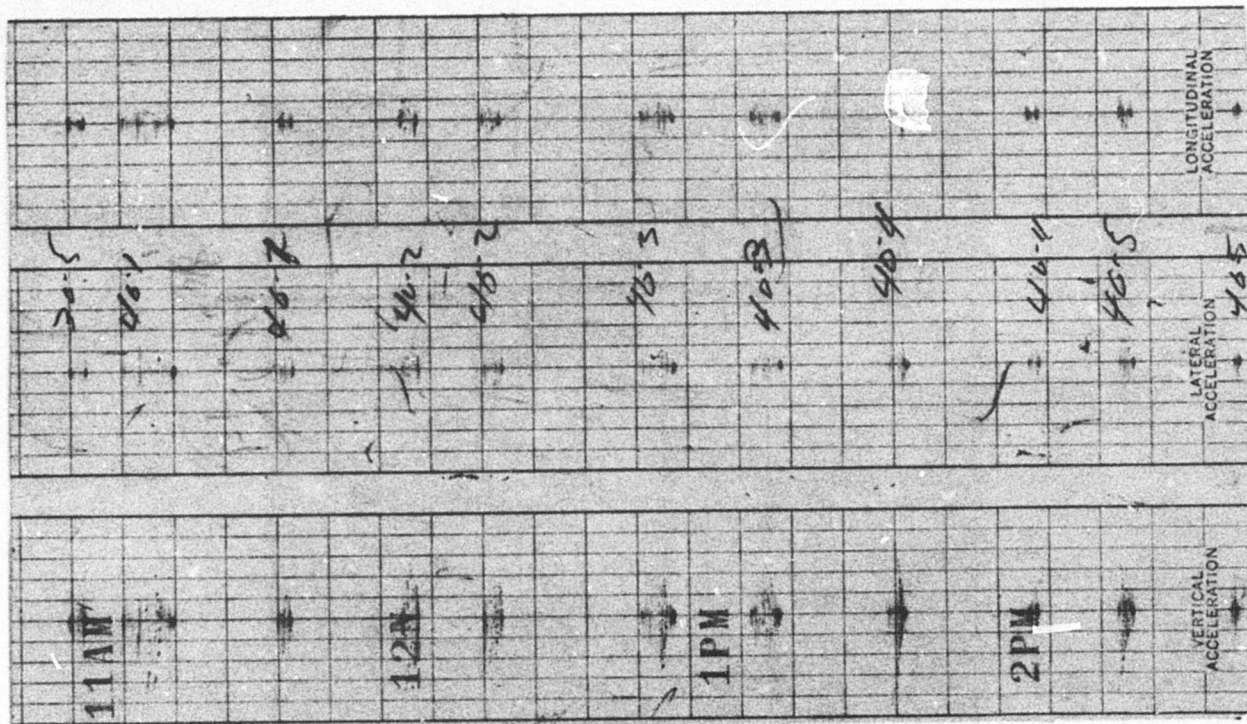 LONGITUDINAL
ACCELERATION
20-5
40-1
40-2
40-2
40-3
40-3
40-4
40-5
405
LATERAL
ACCELERATION
11AM
1PM
2PM
VERTICAL
ACCELERATION